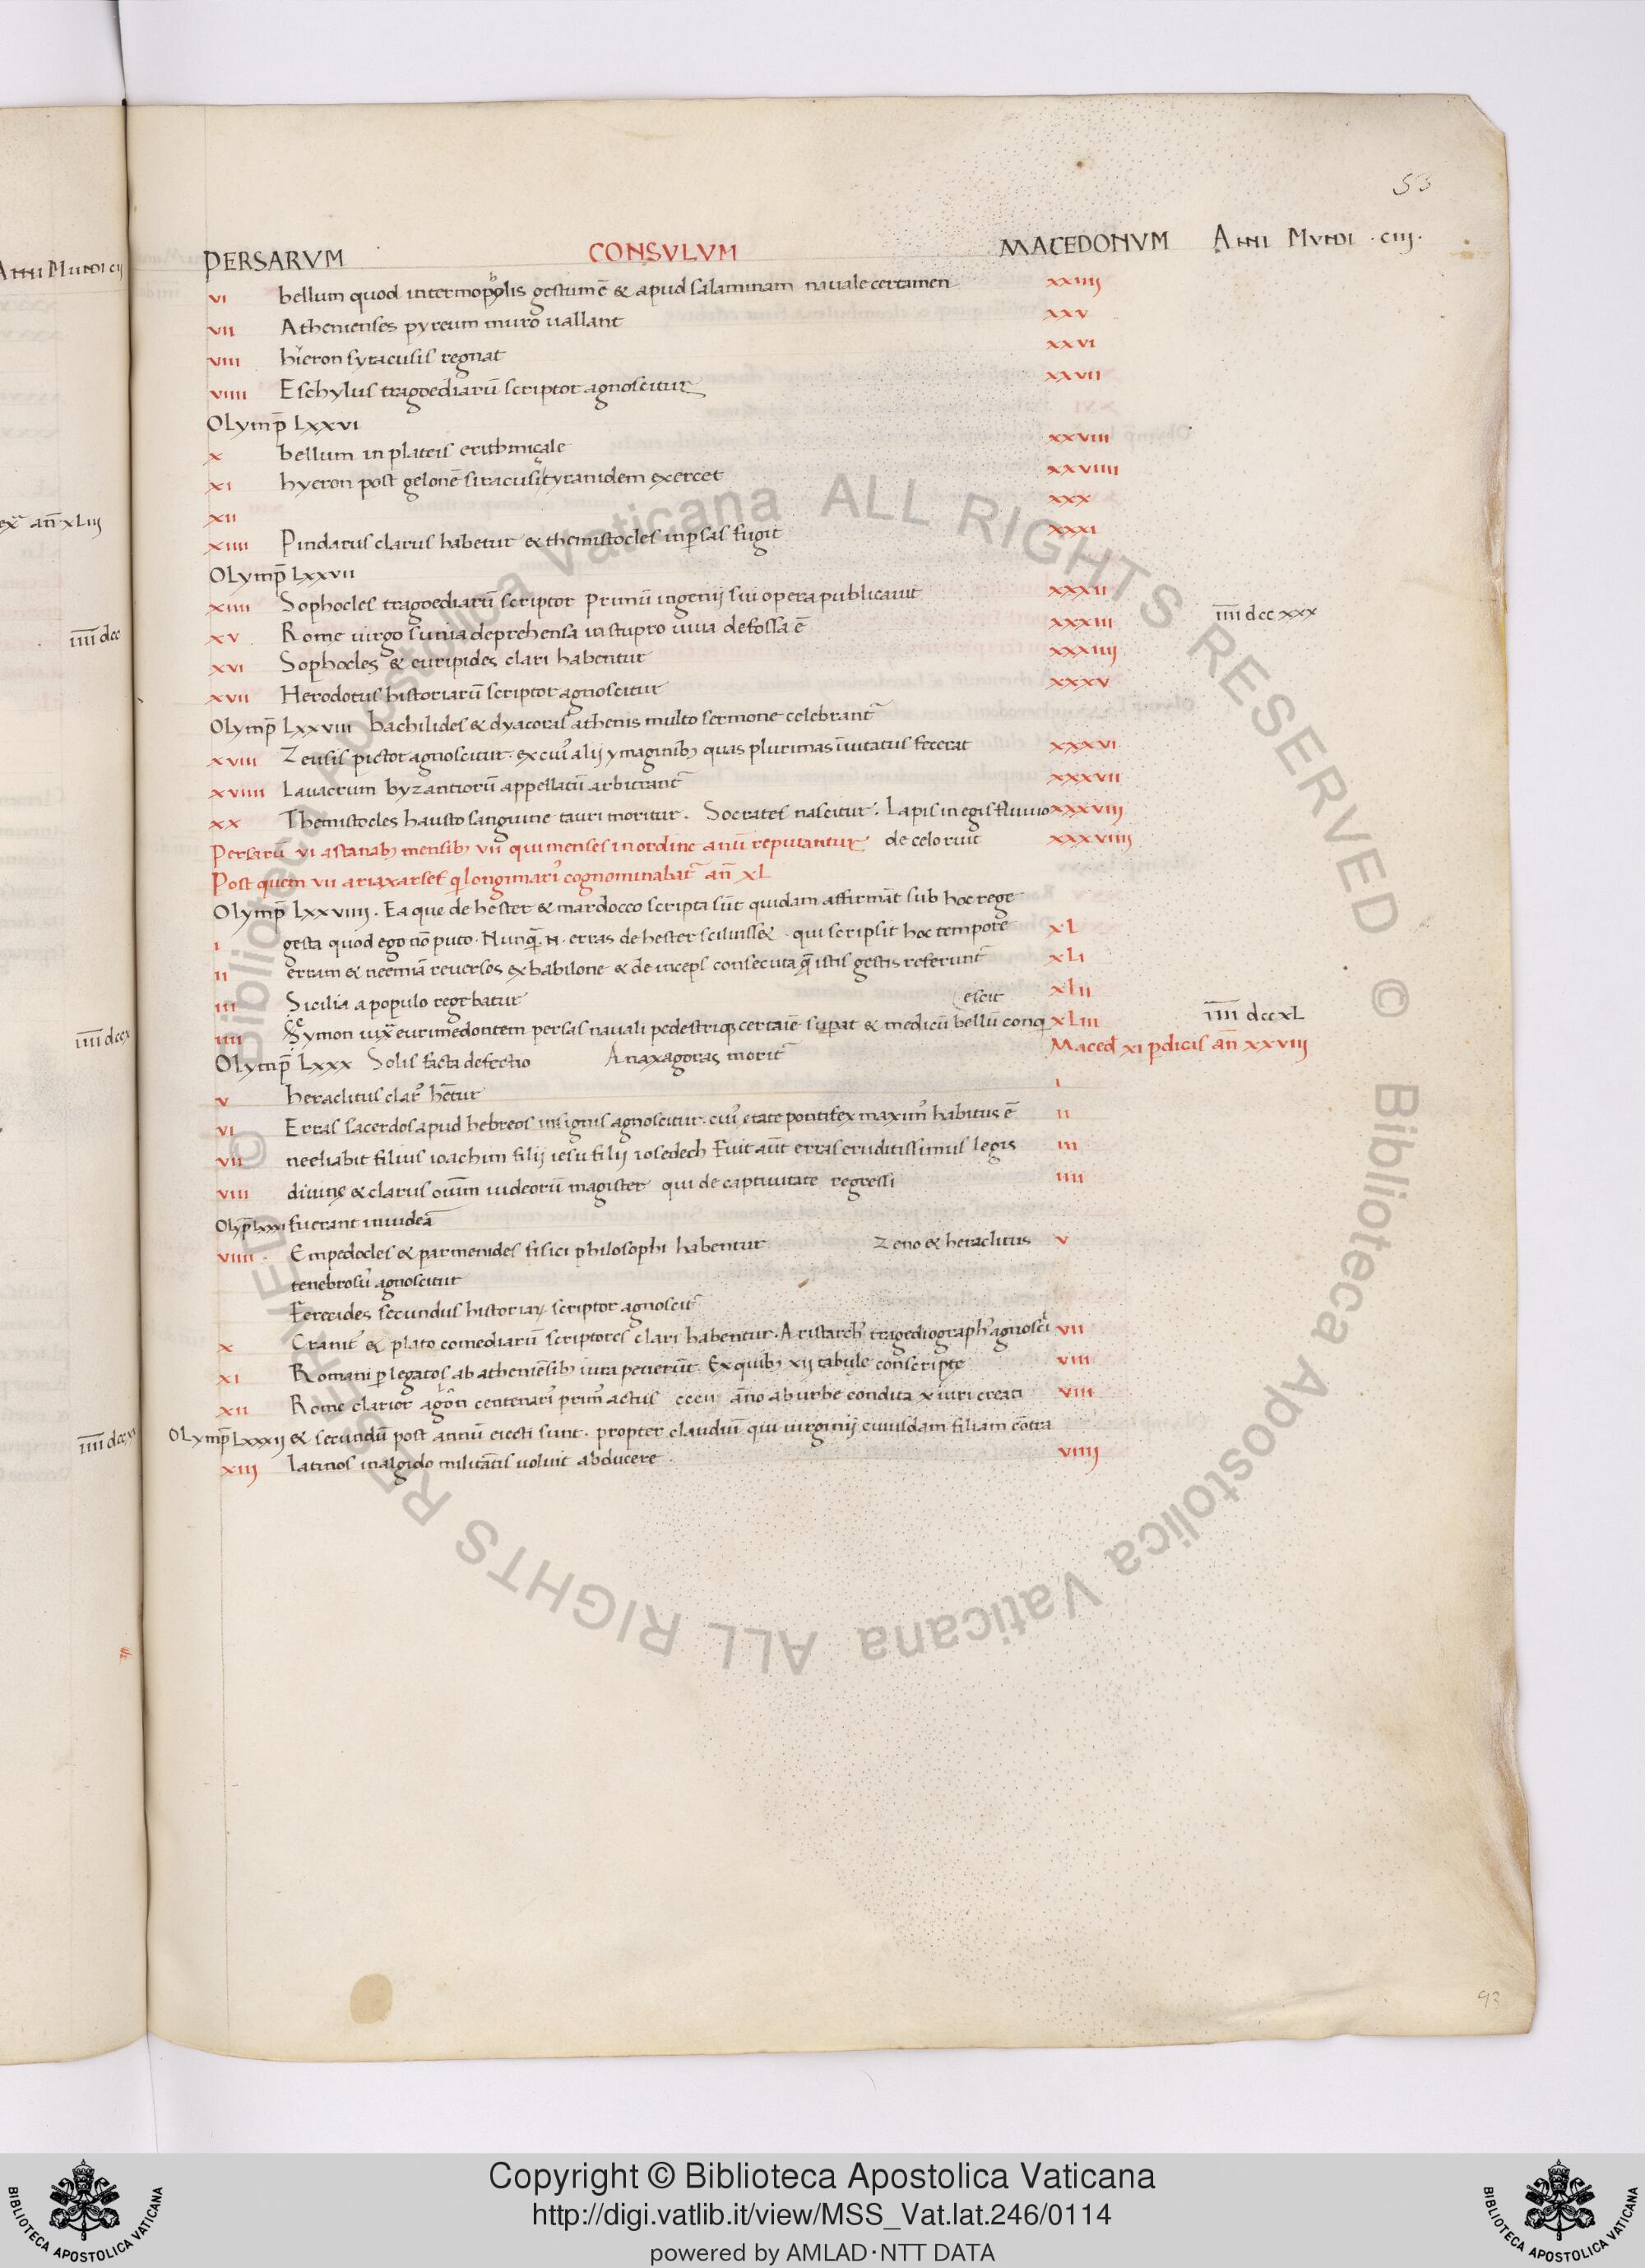 53
PERSARVM CONSVLVM MACEDONVM Anni Mundi .ciij.
Anni Mundi cij
vi bellum quod intermopolis gestum ē & apud salaminam navale certamen xxiiij
vii Athenienses pyreum muro vallant xxv
viii hieron syracusis regnat xxvi
viiii Eschylus tragoediarū scriptor agnoscitur xxvii
Olymp̄ Lxxvi
x bellum in plateis xxviii
xi hyeron post gelonē siracusis tyranidem exercet xxviiii
xii xxx
xiiii Pindarus clarus habetur & themistocles in ꝑsas fugit xxxi
Olymp̄ Lxxvii
xiiii Sophocles tragoediarū scriptor primū ingenij sui opera publicavit xxxii
īīīī dcc xxx
xv Rome virgo sunia deprehensa in stupro viva defossa ē xxxiii
xvi Sophocles & euripides clari habentur xxxiiij
xvii Herodotus historiarū scriptor agnoscitur xxxv
Olymp̄ Lxxviii bachilides & dyacoras athenis multo sermone celebrant᷑
xviii Zeusis pictor agnoscitur. ex cui᷒ alij ymaginib; quas plurimas īvitatus fecerat xxxvi
xviiii Lavacrum byzantiorū appellatū arbitrant᷑ xxxvii
xx Themistocles hausto sanguine tauri moritur. Socrates nascitur. Lapis in egis fluvio xxxviii
Persarū vi astanab; mensib; vii qui menses in ordine anū reputantur de celo ruit xxxviiii
Post quem vii artaxarses q̇ longimar᷒ cognominabat᷑ an̄ xL
Olymp̄ Lxxviiii. Ea que de hester & mardocco scripta sūt quidam affirmāt sub hoc rege
i gesta quod ego nō puto. Nunq̄. n. erras de hester scilvisse& qui scripsit hoc tempore xL
ii erram & neemiā reversos ex babilone & de inceps consecuta q̄ istis gestis referunt᷑ xLi
iii Sicilia a populo regebatur xLii
escit
iiii Symon iuxͣ eurimedontem persas navali pedestriq; certaīe suꝑat & medicū bellū conq̇ xLiii
īīīī dccxL
Olymp̄ Lxxx Solis facta defectio Anaxagoras morit᷑ Maced̄ xi ꝑdicis an̄ xxviii
v heraclitus clar᷒ hētur i
vi Erras sacerdos apud hebreos insignis agnoscitur. cui᷒ etate pontifex maxim᷒ habitus ē ii
vii neeliabit filius ioachim filij iesu filij iosedech Fuit aūt erras eruditissimus legis iii
viii divinę & clarus oīum iudeorū magister qui de captivitate regressi iiii
Olyp̄ Lxxxi fuerant in iudeā
viiii. Empedocles & parmenides fisici philosophi habentur Zeno & heraclitus v
tenebrosu᷒ agnoscitur
Ferecides secundus historiaꝝ scriptor agnoscit᷑
x Cranit᷒ & plato comediarū scriptores clari habentur. Aristarch᷒ tragediograph᷒ agnoscit᷑ vii
xi Romani ꝑ legatos ab atheniēsib; iura petierūt. Ex quib; xij tabule conscripte viii
xii Rome clarior agōn centenari᷒ prim᷒ actus cccii āno ab urbe condita x viri creati viii
Olymp̄ Lxxxij & secundū post annū eiecti sunt. propter claudiū qui virginij cuiusdam filiam cōtra
xiij latinos in algido militātis voluit abducere. viiij
93
Copyright © Biblioteca Apostolica Vaticana
http://digi.vatlib.it/view/MSS_Vat.lat.246/0114
powered by AMLAD·NTT DATA
BIBLIOTECA APOSTOLICA VATICANA
BIBLIOTECA APOSTOLICA VATICANA
© Biblioteca Apostolica Vaticana ALL RIGHTS RESERVED © Biblioteca Apostolica Vaticana ALL RIGHTS RESERVED